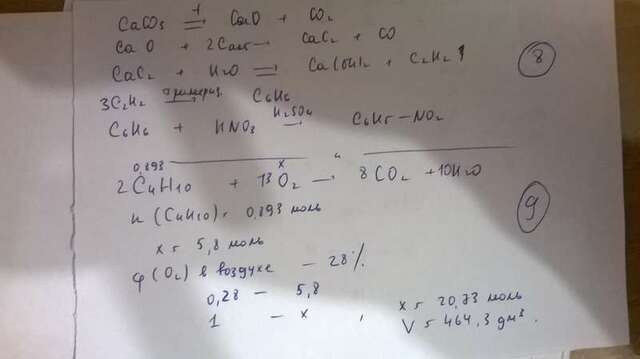 CaCO₃ ⇌ CaO + CO₂
CaO + 2Cакт → CaC₂ + CO
CaC₂ + H₂O = Ca(OH)₂ + C₂H₂↑
3C₂H₂ тримериз. C₆H₆
C₆H₆ + HNO₃ H₂SO₄ → C₆H₅-NO₂
8
0,893 x
2C₄H₁₀ + 13O₂ → 8CO₂ + 10H₂O
n(C₄H₁₀) = 0,893 моль
x = 5,8 моль
9
φ(O₂) в воздухе - 28%.
0,28 - 5,8
1 - x , x = 20,73 моль
V = 464,3 дм³.